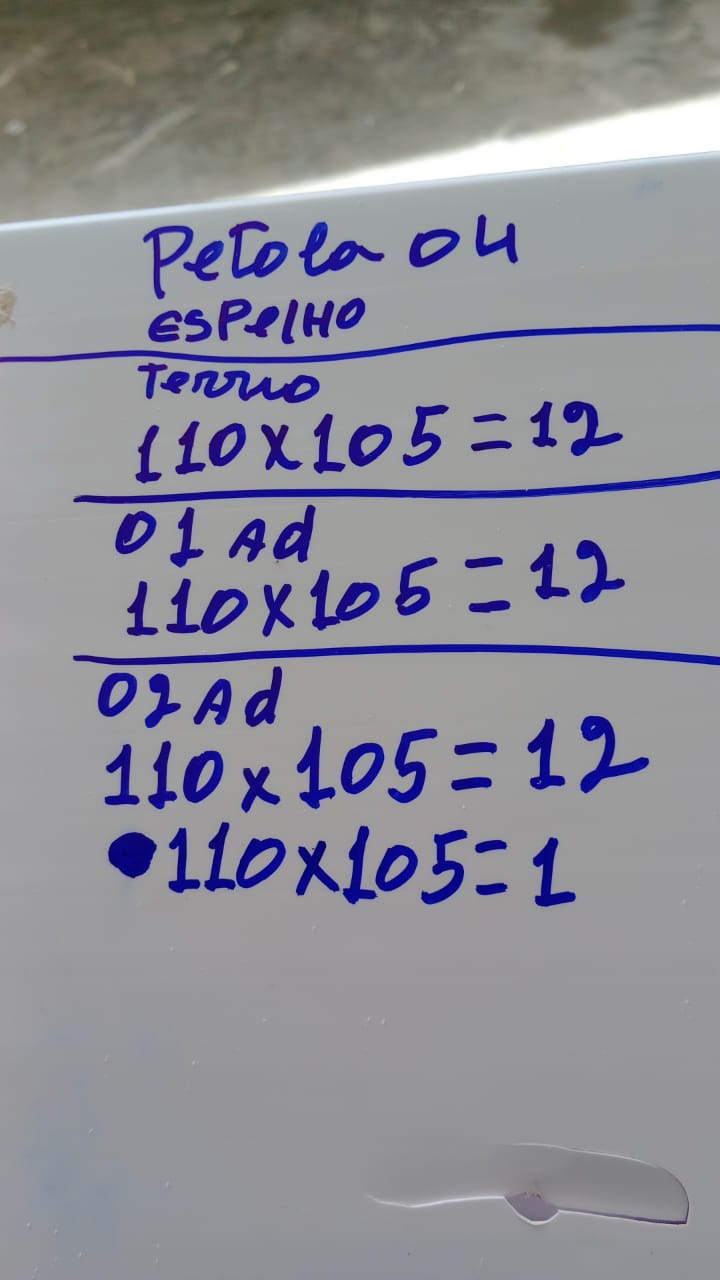 Petola 04
ESPelHO
Terrio
110x105=12
01 Ad
110x105=12
02 Ad
110x105=12
110x105=1